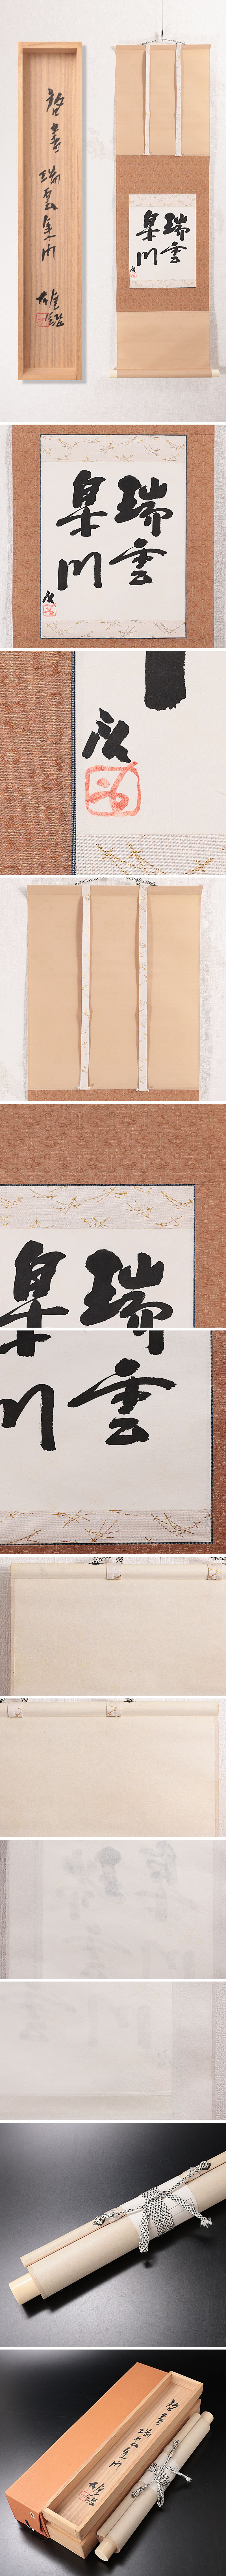 啓書 瑞雲集門
雄鑑
瑞雲
集門
啓